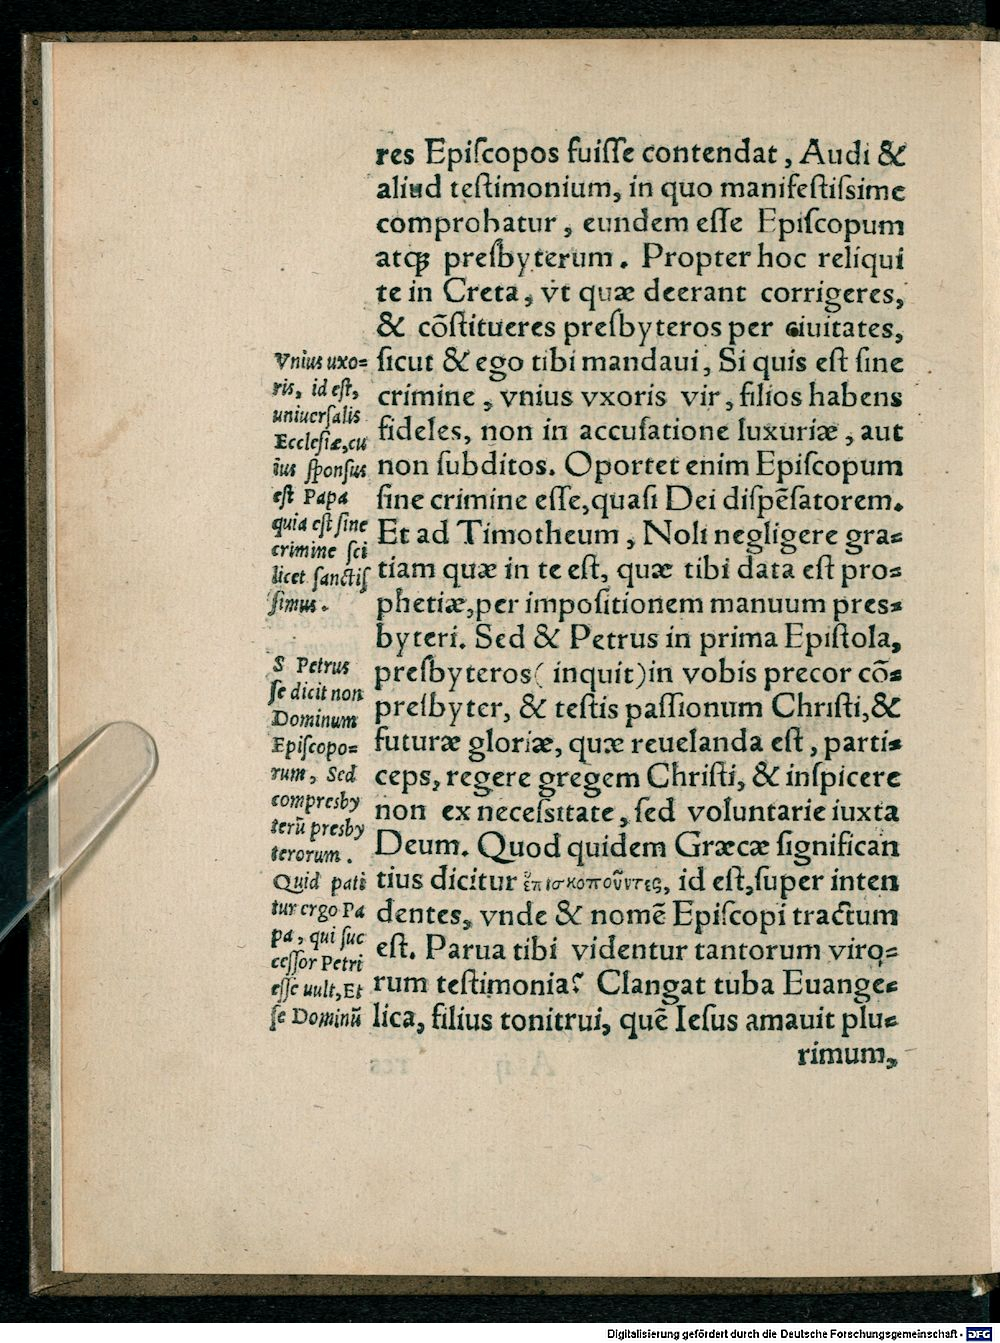 res Epiſcopos fuiſſe contendat, Audi &
aliud teſtimonium, in quo manifeſtiſsime
comprobatur, eundem eſſe Epiſcopum
atq́ꝫ preſbyterum. Propter hoc reliqui
te in Creta, vt quæ deerant corrigeres,
& cõſtitueres preſbyteros per ciuitates,
ſicut & ego tibi mandaui, Si quis eſt ſine
crimine, vnius vxoris vir, filios habens
fideles, non in accuſatione luxuriæ, aut
non ſubditos. Oportet enim Epiſcopum
ſine crimine eſſe, quaſi Dei diſpẽſatorem.
Et ad Timotheum, Noli negligere gra⸗
tiam quæ in te eſt, quæ tibi data eſt pro⸗
phetiæ, per impoſitionem manuum pres⸗
byteri. Sed & Petrus in prima Epiſtola,
preſbyteros (inquit) in vobis precor cõ⸗
preſbyter, & teſtis paſſionum Chriſti, &
futuræ gloriæ, quæ reuelanda eſt, parti⸗
ceps, regere gregem Chriſti, & inſpicere
non ex neceſsitate, ſed voluntarie iuxta
Deum. Quod quidem Græcæ ſignifican
tius dicitur ἐπισκοποῦντες, id eſt, ſuper inten
dentes, vnde & nomẽ Epiſcopi tractum
eſt. Parua tibi videntur tantorum viro⸗
rum teſtimonia? Clangat tuba Euange⸗
lica, filius tonitrui, quẽ Ieſus amauit plu⸗
rimum,
Vnius uxo⸗
ris, id eſt,
uniuerſalis
Eccleſiæ, cu
ius ſponſus
eſt Papa
quia eſt ſine
crimine ſci
licet ſanctiſ
ſimus.
S Petrus
ſe dicit non
Dominum
Epiſcopo⸗
rum, Sed
compresby
terũ presby
terorum.
Quid patĩ
tur ergo Pa
pa, qui ſuc
ceſſor Petri
eſſe uult, Et
ſe Dominũ
Digitalisierung gefördert durch die Deutsche Forschungsgemeinschaft - DFG